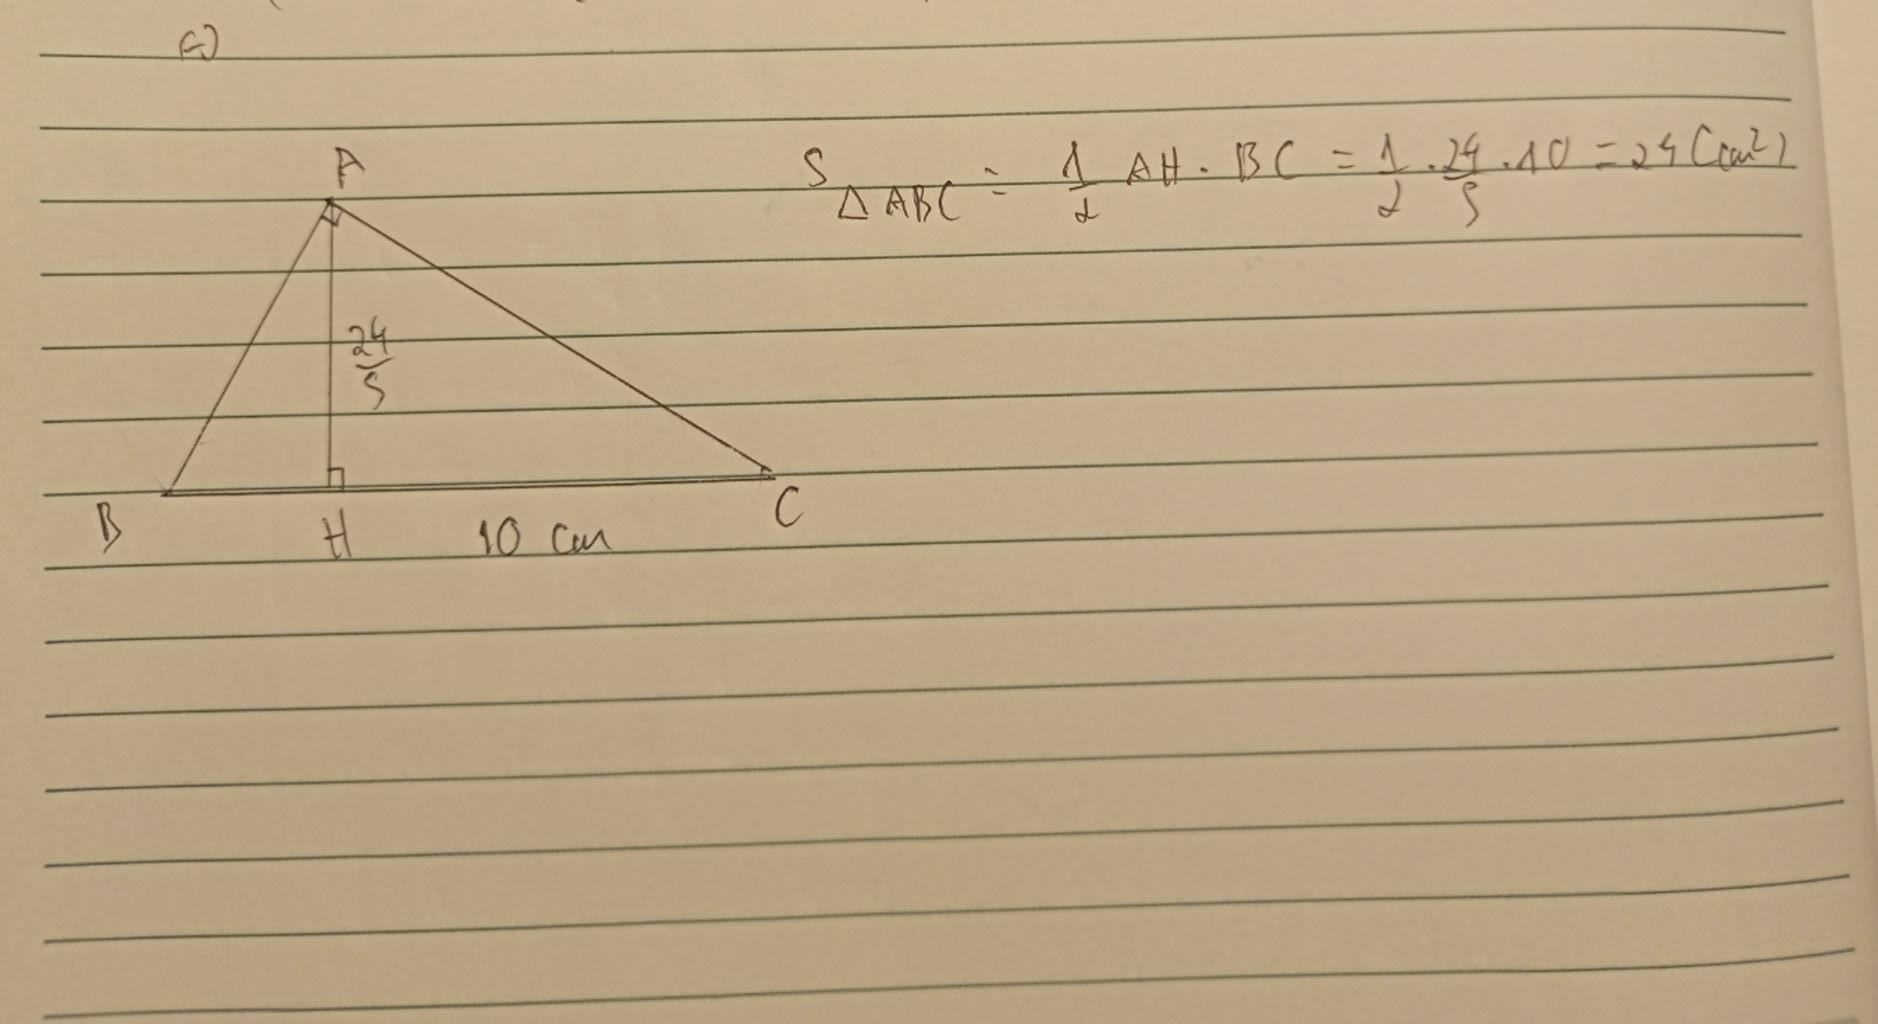 A
S△ABC = 1/2 AH . BC = 1/2 . 24/5 . 10 = 24 (cm²)
24/5
B H 10 cm C